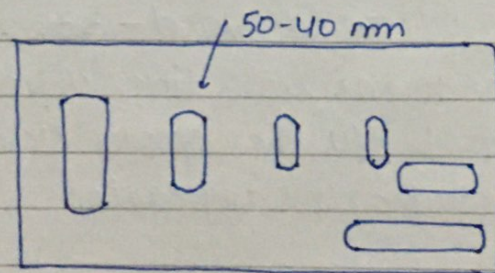 50-40 mm